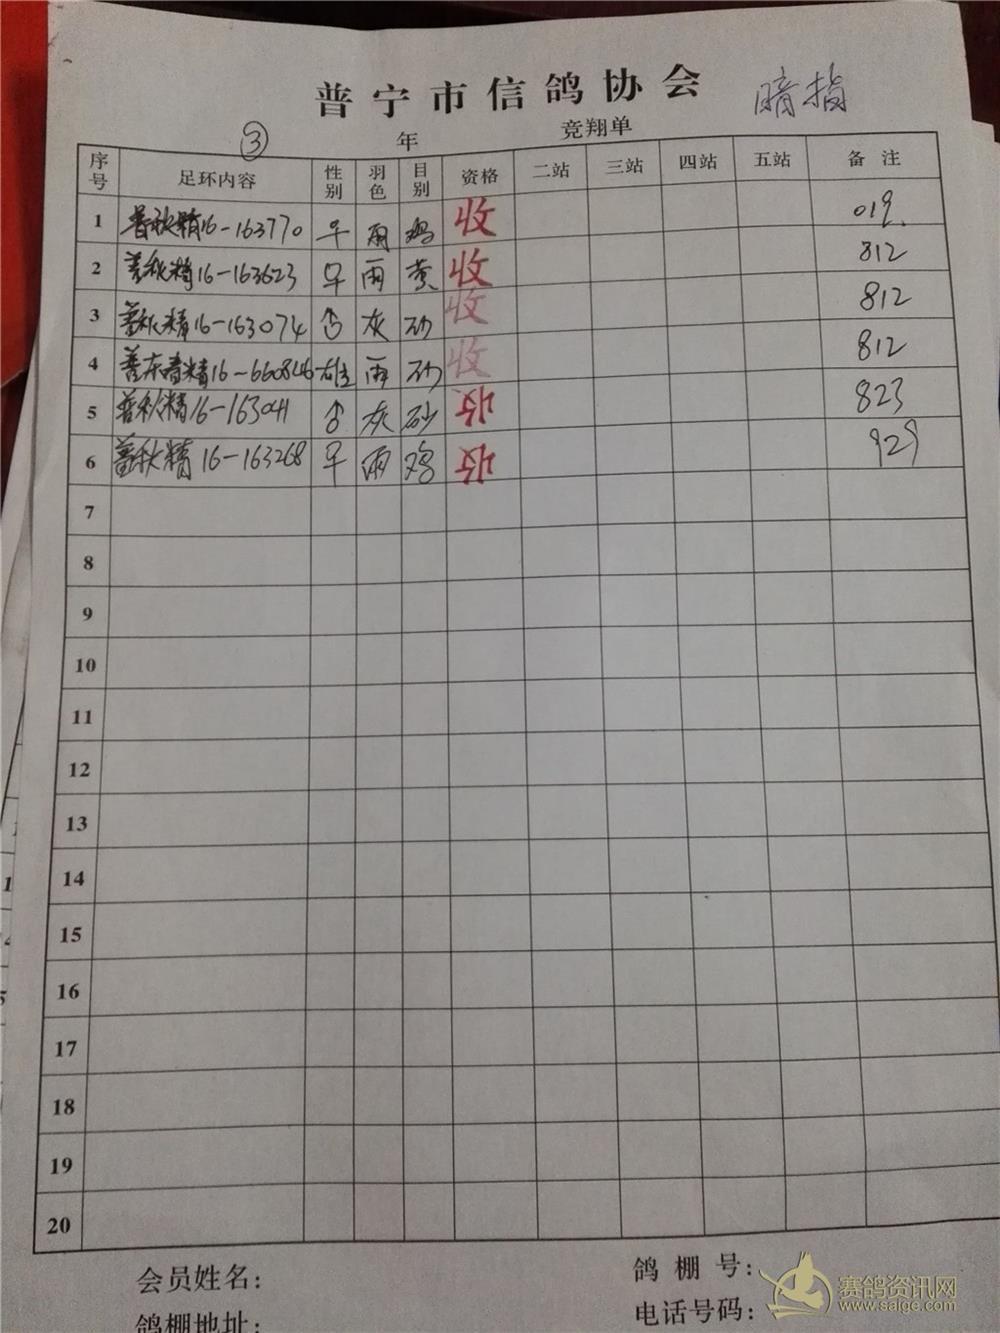 普宁市信鸽协会 暗指
③ 年 竞翔单
序号 足环内容 性别 羽色 目别 资格 二站 三站 四站 五站 备注
1 普秋精16-163770 雨 鸡 收 019.
2 普秋精16-163623 雨 黄 收 812
3 普秋精16-163074 ♂ 灰 砂 收 812
4 普东青精16-660846 雄 雨 砂 收 812
5 普秋精16-163041 ♂ 灰 砂 收 823
6 普秋精16-163268 雨 鸡 收 929
7
8
9
10
11
12
13
14
15
16
17
18
19
20
会员姓名: 鸽棚号:
鸽棚地址: 电话号码:
赛鸽资讯网
www.saige.com